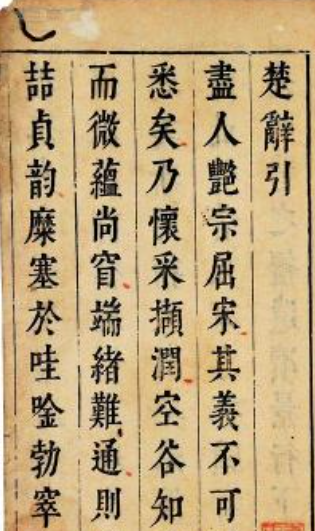 楚辭引
盡人艷宗屈宋其義不可
悉矣乃懷采擷潤空谷知
而微蘊尚窅端緒難通則
詰貞韵糜塞於哇唫勃窣